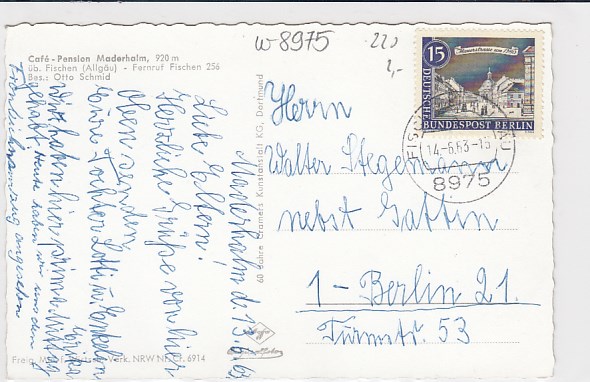 w 8975
220
2,-
Café-Pension Maderhalm, 920 m
üb. Fischen (Allgäu) - Fernruf Fischen 256
Bes.: Otto Schmid
15
Mauerstrasse um 1780
DEUTSCHE
BUNDESPOST BERLIN
14.-6.63-15
8975
Maderhalm d. 13.6.63
Liebe Eltern!
Herzliche Grüße von hier
oben senden
Eure Tochter Lotti u. Enkelin
Erika
Wir haben hier prima Mittag
gehabt. Heute haben wir uns den
Fronleichnamszug angesehen
60 Jahre Cramers Kunstanstalt KG, Dortmund
Herrn
Walter Stegemann
nebst Gattin
1-Berlin 21.
Turmstr. 53
Agfa
Verk. NRW NF. CF. 6914